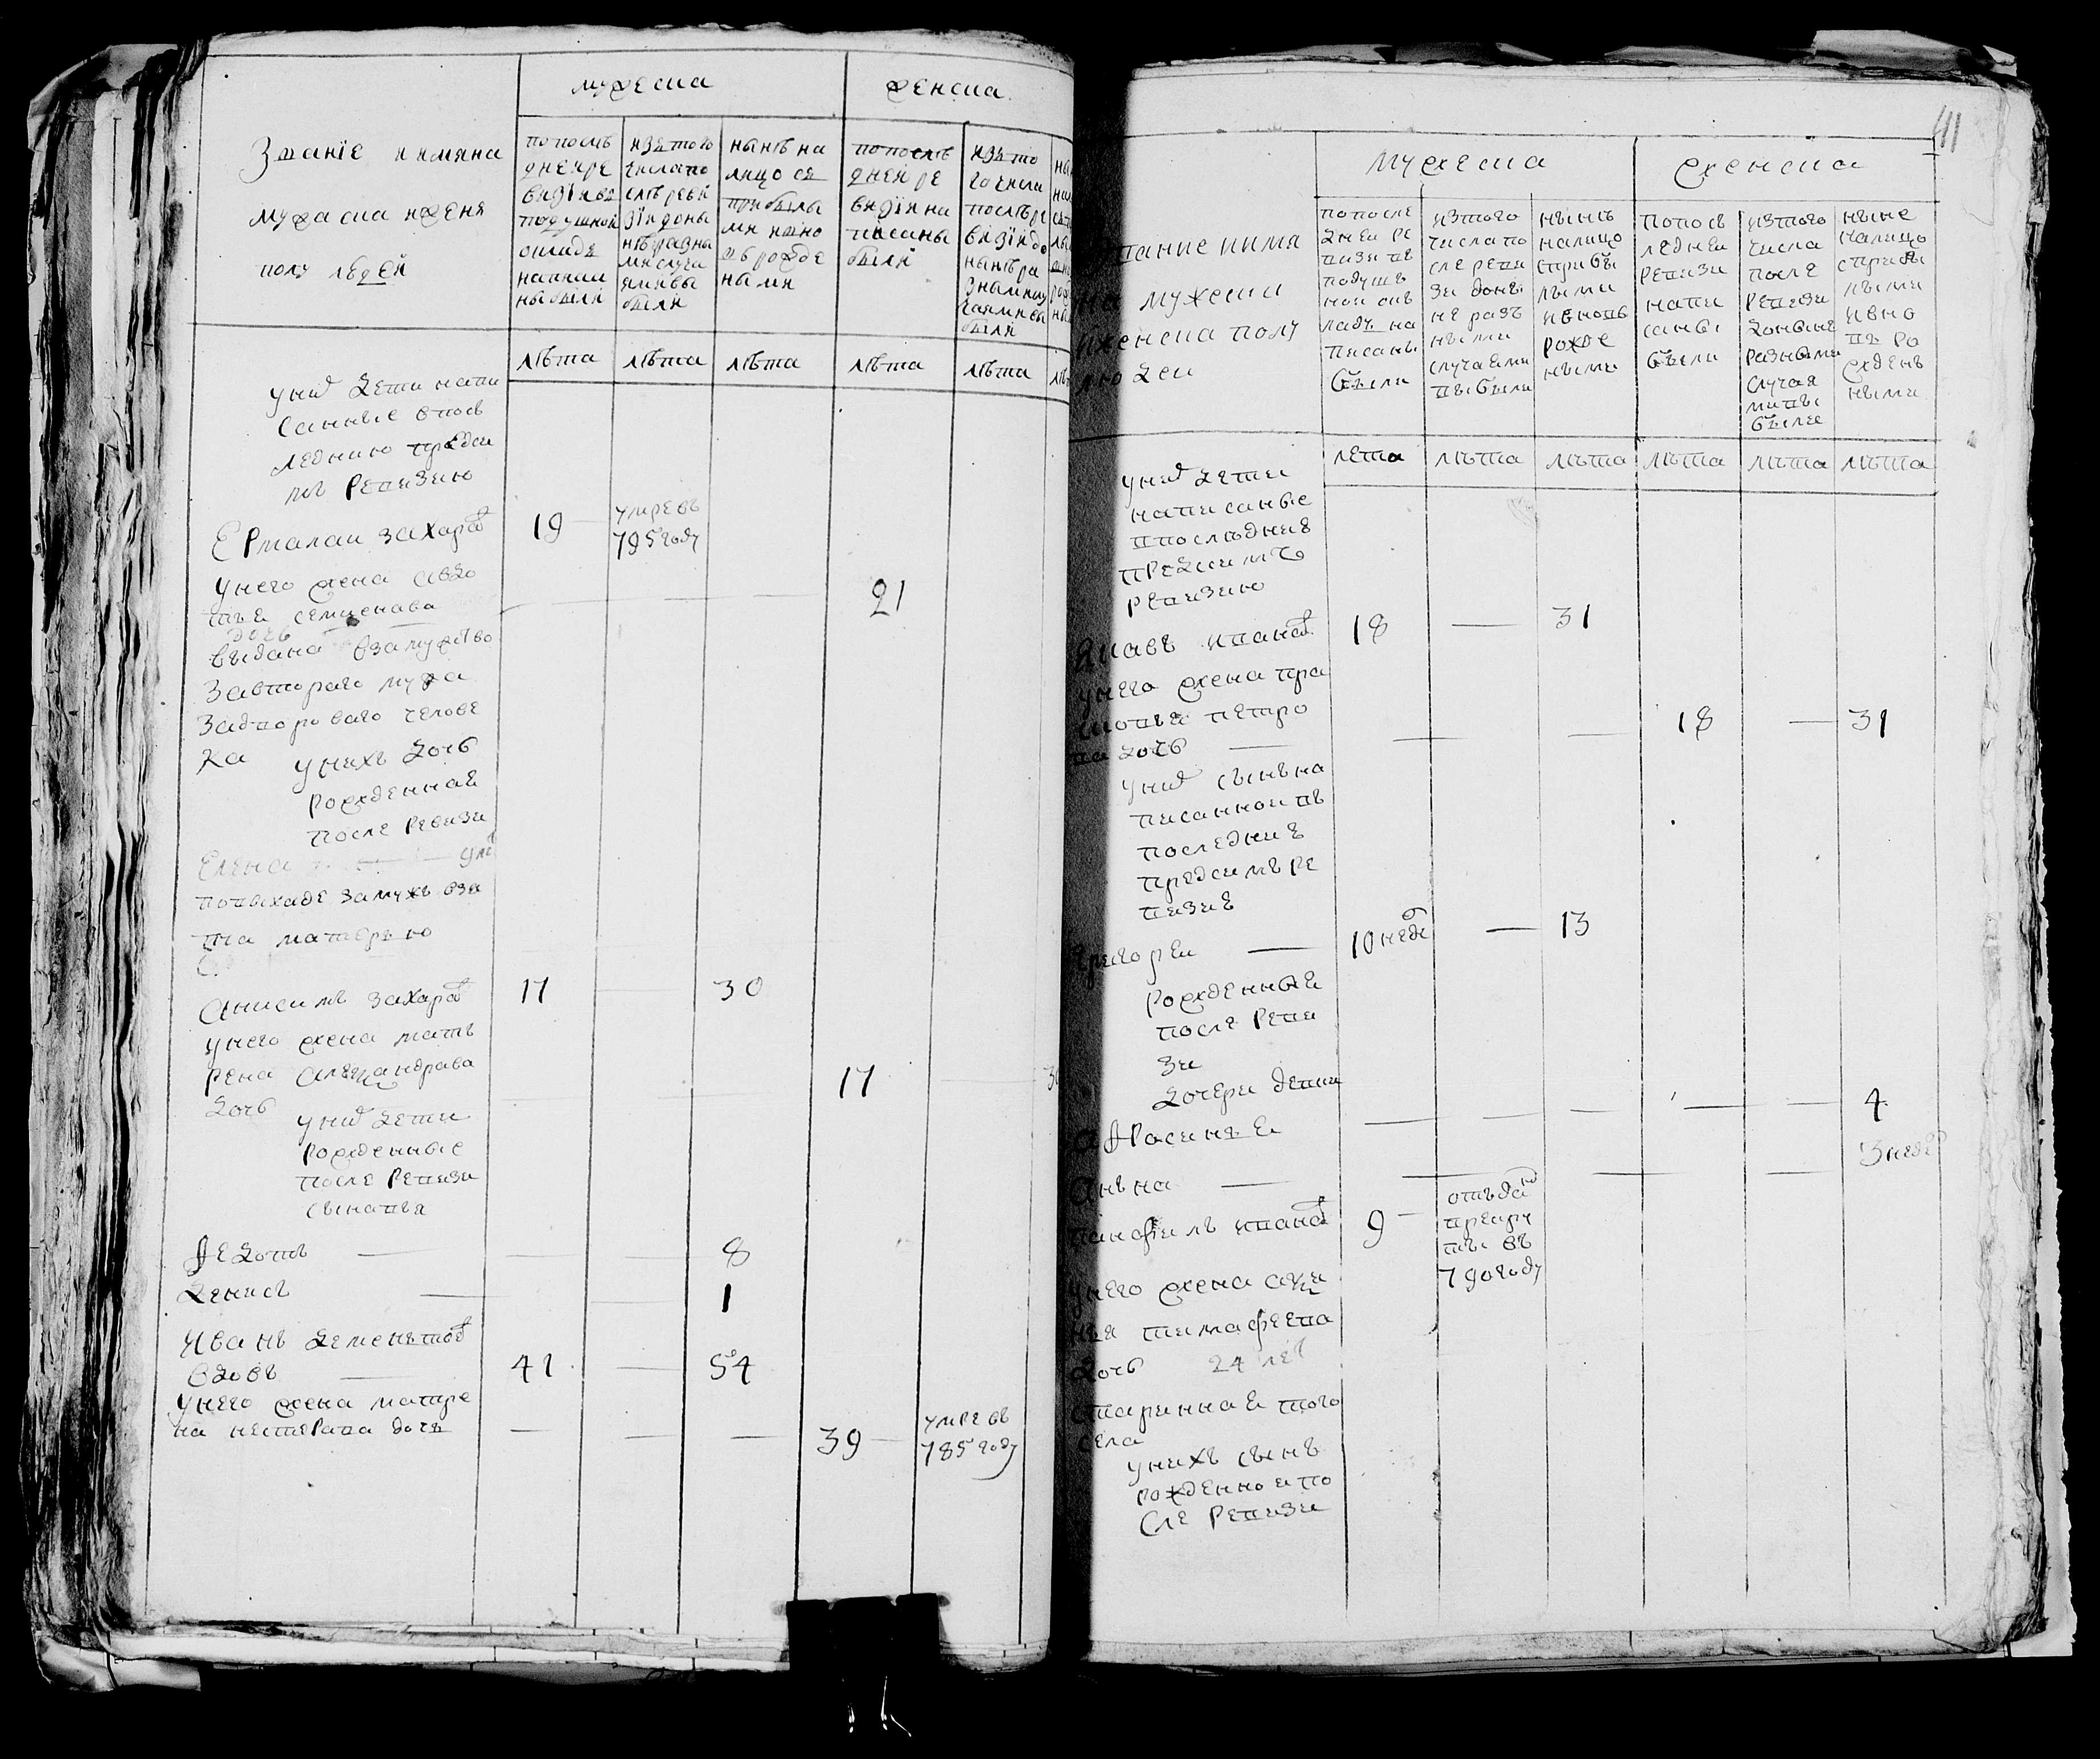 мужеска
женска
Звание и имяна
мужеска и женя
полу людей
по послѣ
дней ре
визіи въ
подушной
окладъ
написа
ны были
изъ того
числа по
слѣ реви
зіи до ны
нѣ разны
ми случа
ями вы
были
нынѣ на
лицо съ
прибылы
ми и вно
въ рожде
ными
по послѣ
дней ре
визіи на
писаны
были
изъ то
го числа
послѣ ре
визіи до
нынѣ ра
зными слу
чаями вы
были
лѣта
лѣта
лѣта
лѣта
лѣта
у них дети напи
санные в посъ
леднию предси
мъ ревизию
Ермалаи Захаров
19
умре въ
795 году
у него жена авдо
тья семионава
21
дочь
выдана в замужство
за втораго мужа
за двороваго челове
ка
у нихъ дочь
рожденная
после ревизи
Елена
9 ле
по выхаде замужъ взи
та матерью
Анисимъ Захаров
17
30
у него жена матъ
рена александрава
17
дочь
у них дети
рожденные
после ревизи
сыновья
Федотъ
8
Денисъ
1
Иванъ Деменътов
вдовъ
41
54
у него жена матре
на нестерава дочь
39
умре въ
785 году
41
мужеска
женска
звание и имя
на мужеска
и женска полу
людеи
по после
днеи ре
визи въ
подушъ
нои окъ
ладъ на
писаны
были
изтого
числа по
сле реви
зи доны
не разъ
ными
случаеми
выбыли
нынѣ
налицо
с прибы
лыми
и вновь
рожде
ными
по посъ
леднеи
ревизи
напи
саны
были
изтого
числа
после
ревизи
доныне
разными
случая
ми вы
были
ныне
налицо
с прибы
лыми
и вно
въ ро
ждень
ными
лета
лѣта
лѣта
лѣта
лѣта
лѣта
у них дети
написаные
в последния
предсимъ
ревизию
Яковъ иванов
18
31
у него жена пра
сковья петро
18
31
ва дочь
у них сынъ на
писаннои въ
последния
предсимъ ре
визия
Григореи
10 неде
13
рожденныя
после реви
зи
дочери дети
афросинья
4
Анъна
3 неде
панфилъ иванов
9
отъдан
в рекру
ты въ
790 году
у него жена аку
нья тимафеева
дочь
24 лет
старинная того
села
у нихъ сынъ
рожденнои по
сле ревизи